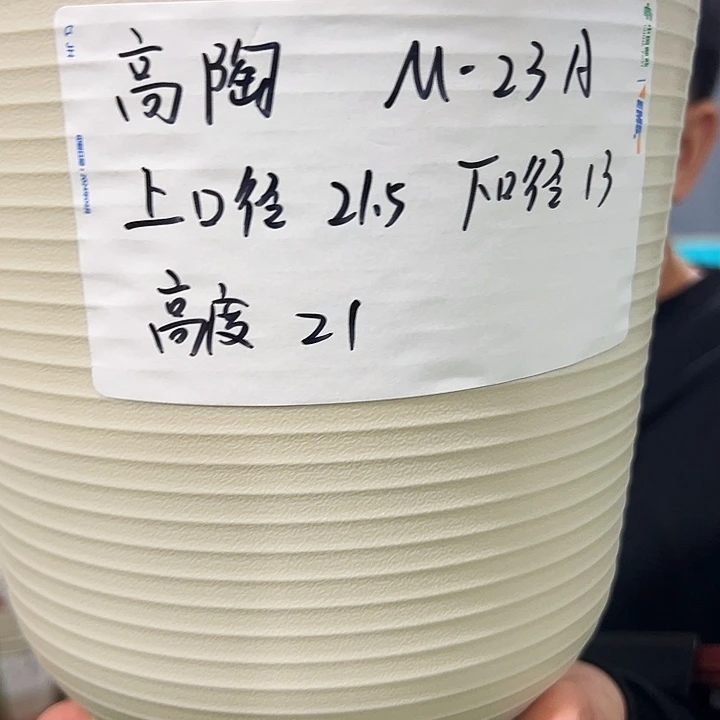 高陶 M-23A
上口径 21.5 下口径 13
高度 21